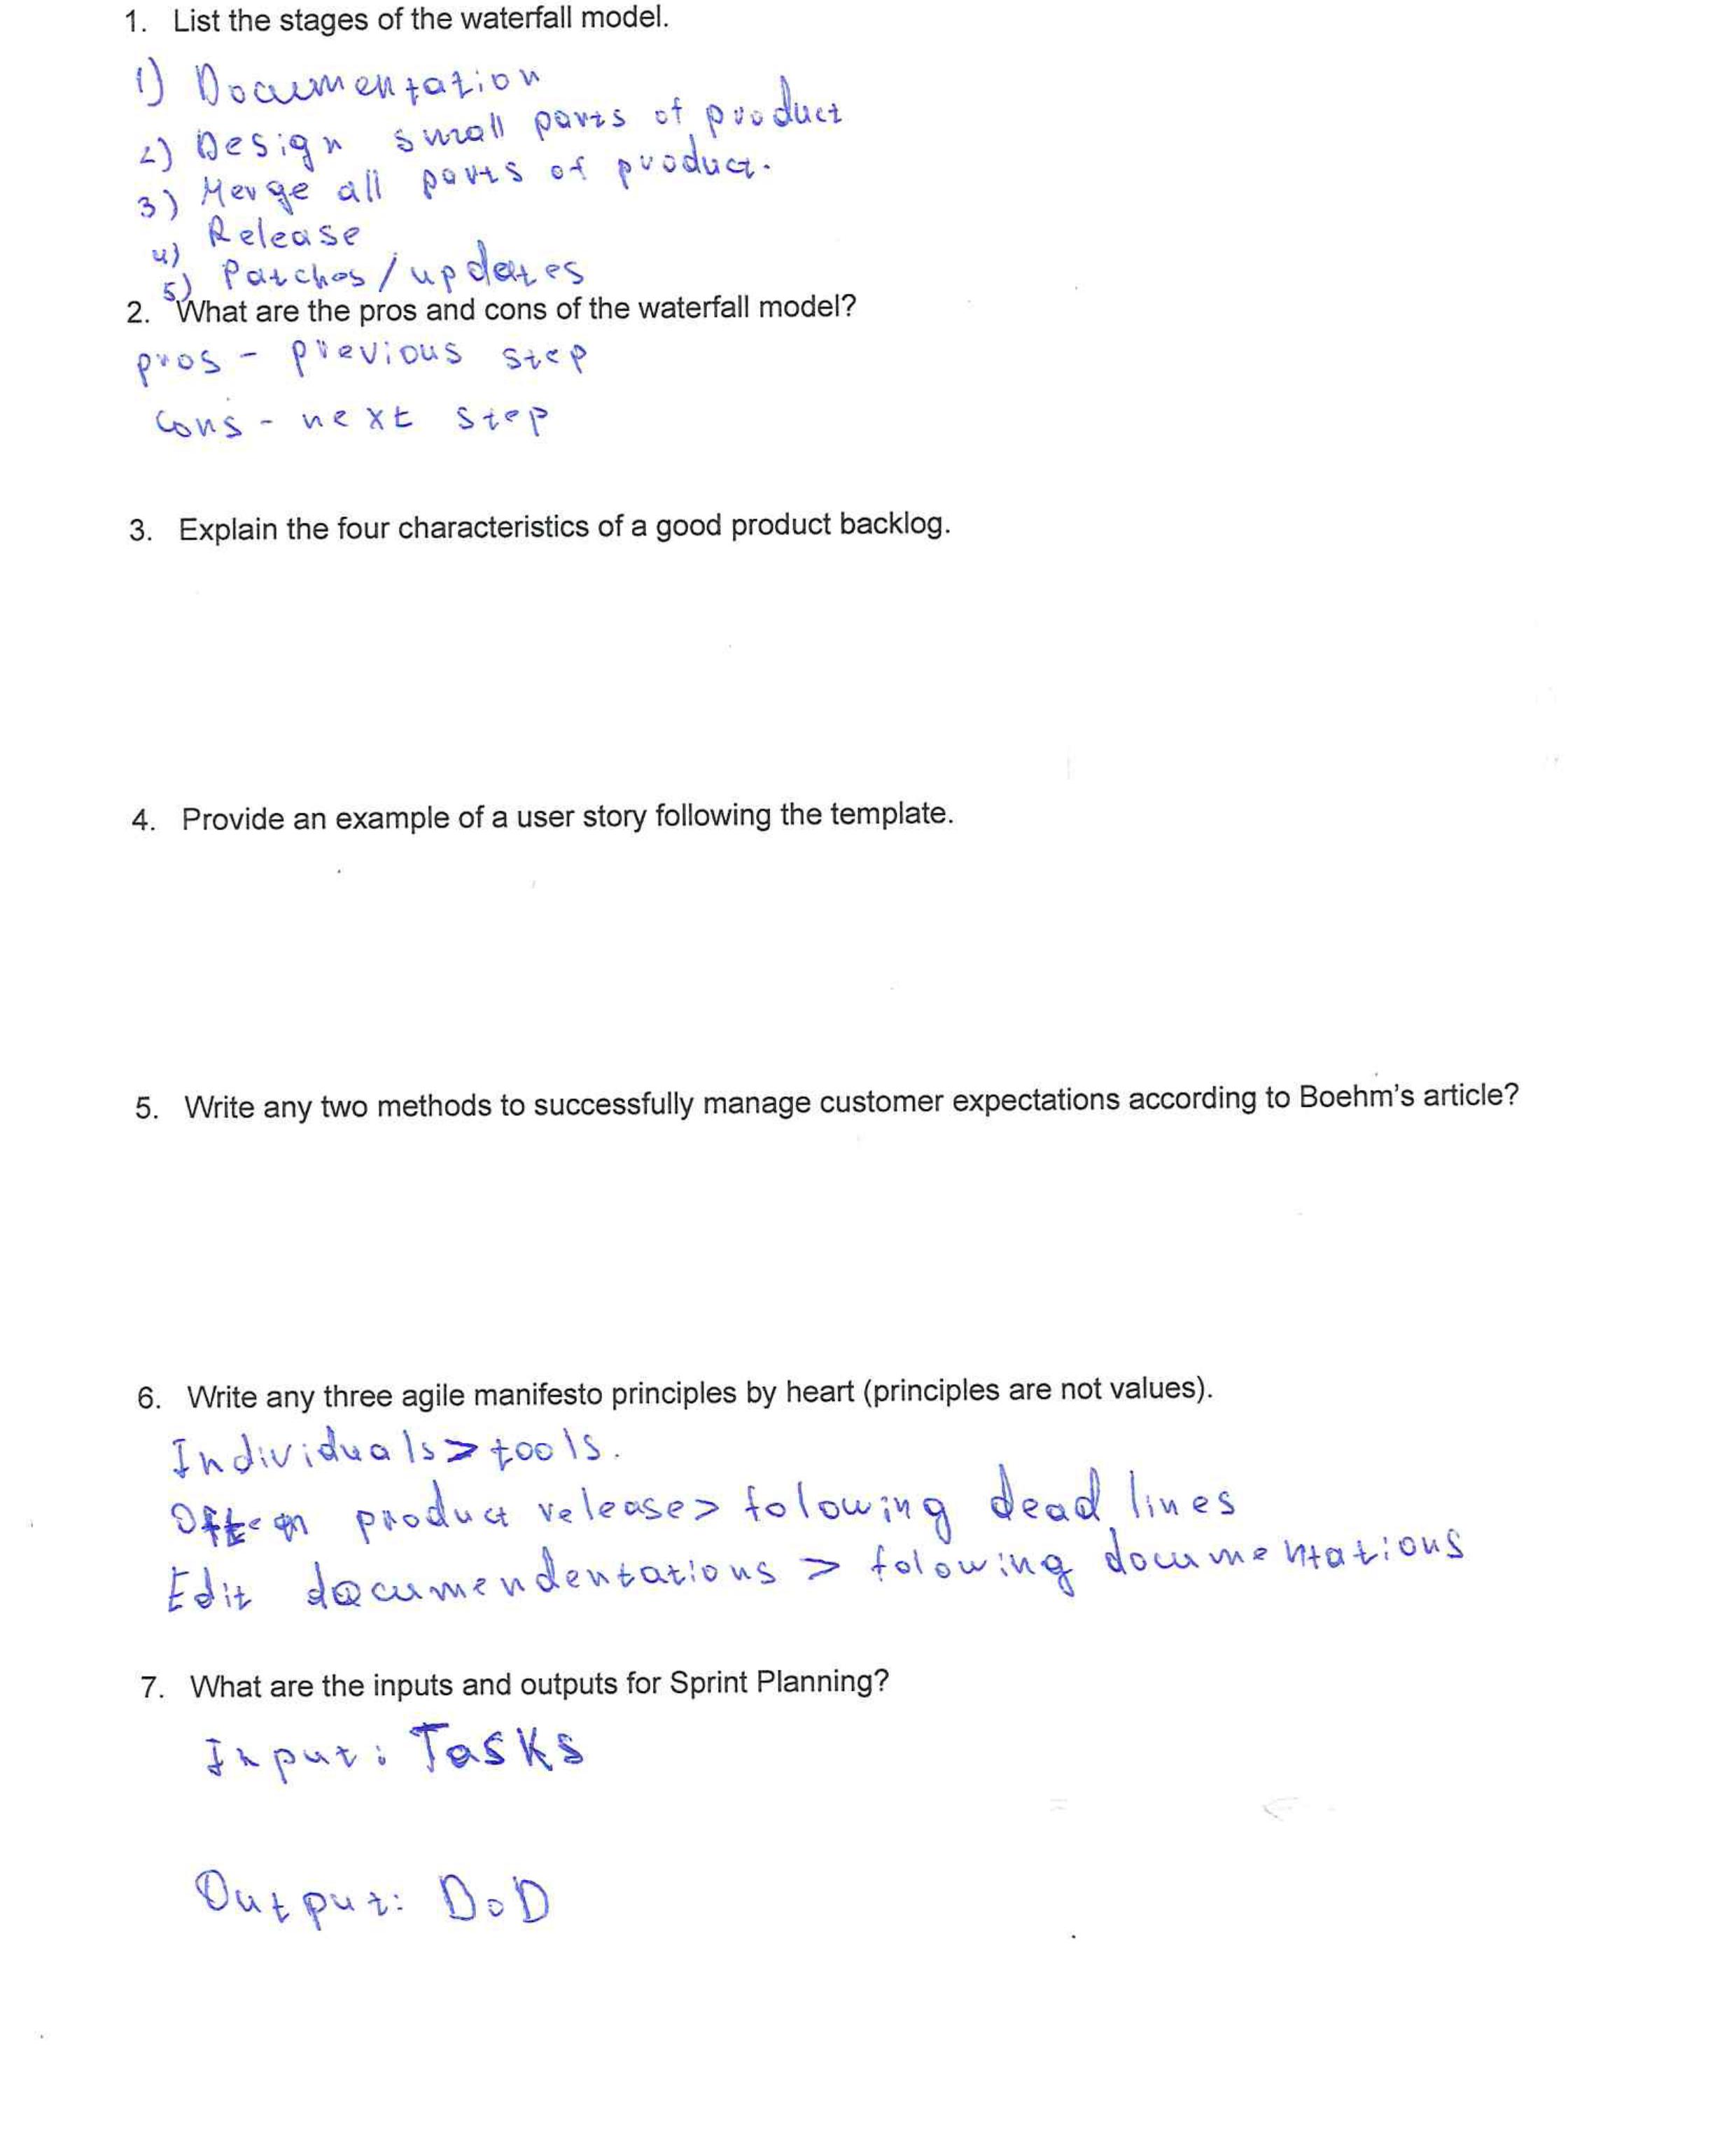 1. List the stages of the waterfall model.
1) Documentation
2) Design small parts of product
3) Merge all parts of product.
4) Release
5) Patches/updates
2. What are the pros and cons of the waterfall model?
pros - previous step
cons - next step
3. Explain the four characteristics of a good product backlog.
4. Provide an example of a user story following the template.
5. Write any two methods to successfully manage customer expectations according to Boehm's article?
6. Write any three agile manifesto principles by heart (principles are not values).
Individuals > tools.
Often product release > folowing dead lines
Edit documendentations > folowing documentations
7. What are the inputs and outputs for Sprint Planning?
Input: Tasks
Output: DoD